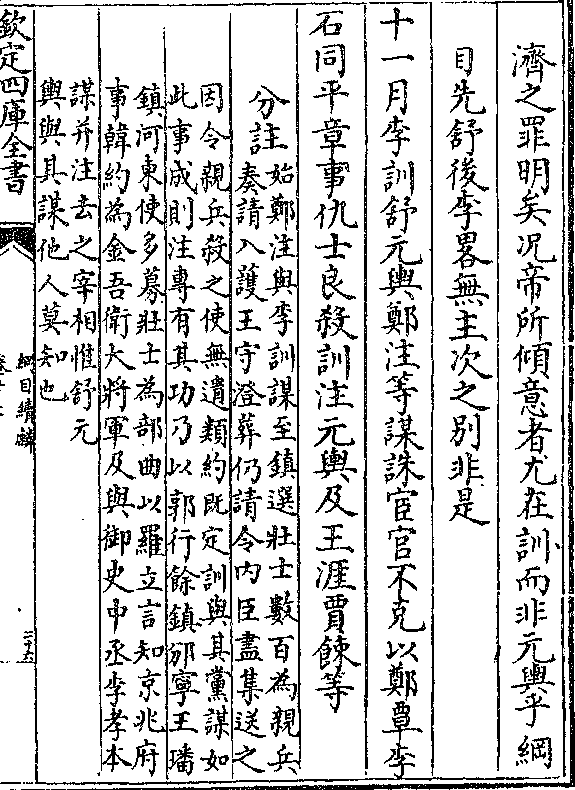 濟之罪明矣况帝所傾意者尤在訓而非元輿乎綱
目先舒後李畧無主次之別非是
十一月李訓舒元輿鄭注等謀誅宦官不克以鄭覃李
石同平章事仇士良殺訓注元輿及王涯賈餗等
分註始鄭注與李訓謀至鎮選壯士數百為親兵
奏請入護王守澄葬仍請令内臣盡集送之
因令親兵殺之使無遺類約既定訓與其黨謀如
此事成則注專有其功乃以郭行餘鎮邠寧王璠
鎮河東使多募壯士為部曲以羅立言知京兆府
事韓約為金吾衛大將軍及與御史中丞李孝本
謀并注去之宰相惟舒元
輿與其謀他人莫知也
欽定四庫全書
綱目續麟
二十六